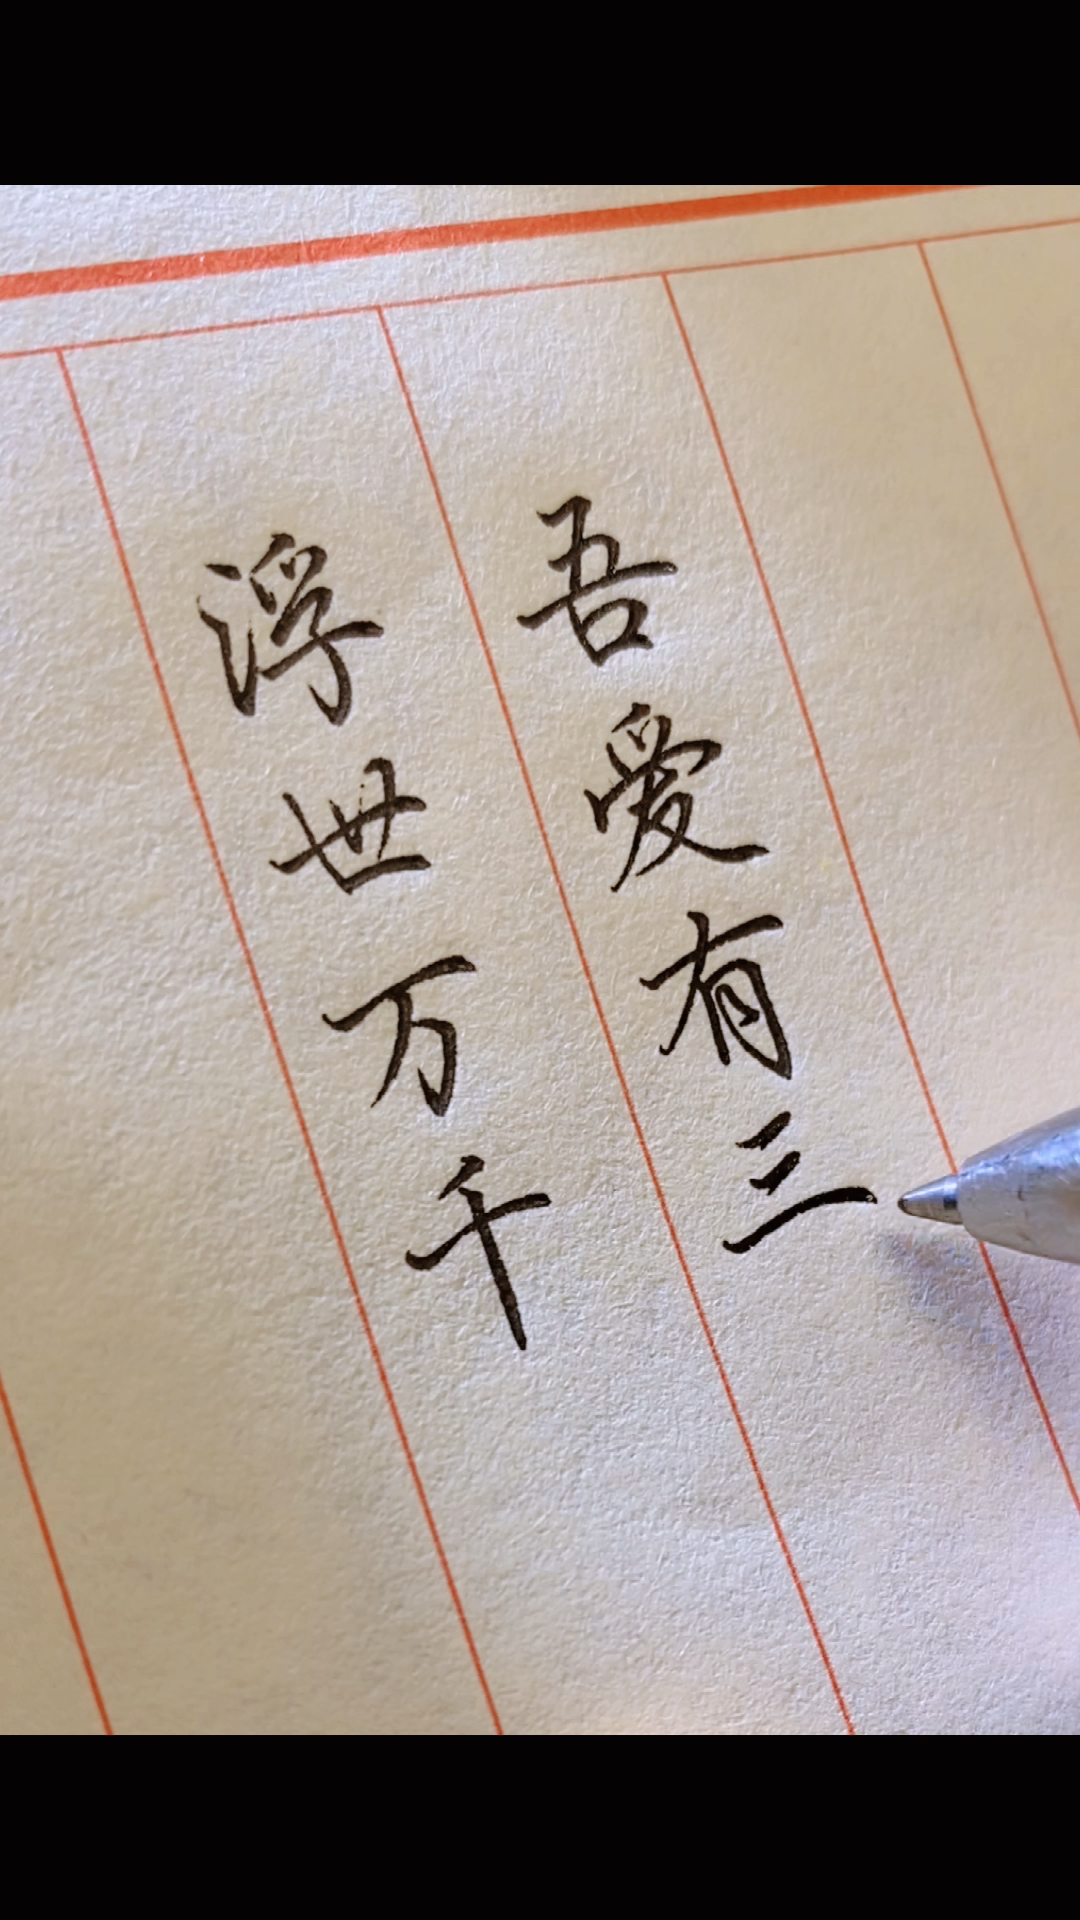 浮世万千
吾爱有三